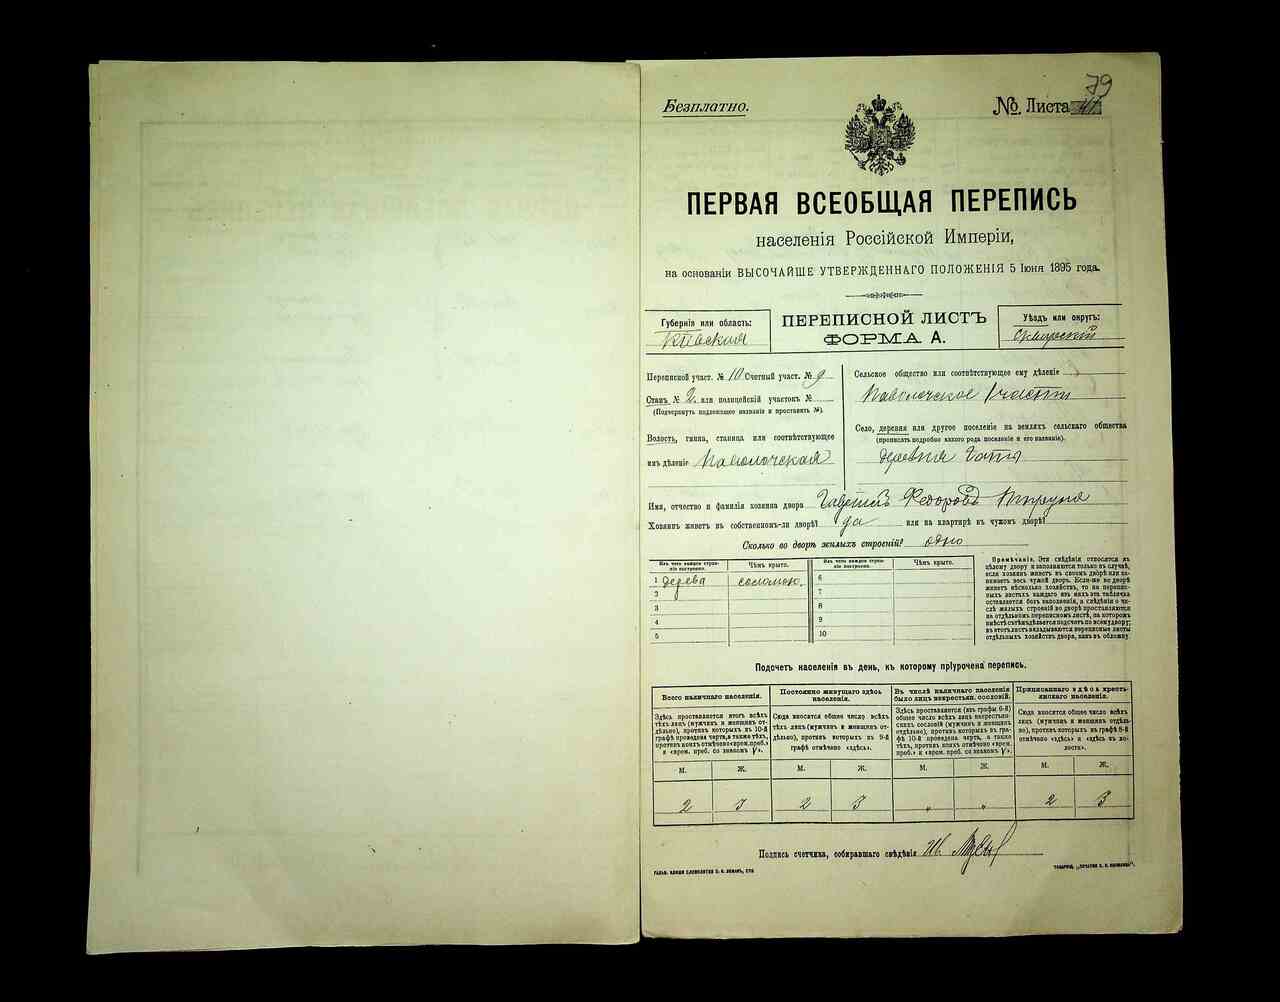 79
Безплатно.
№. Листа
ПЕРВАЯ ВСЕОБЩАЯ ПЕРЕПИСЬ
населенія Россійской Имперіи,
на основаніи ВЫСОЧАЙШЕ УТВЕРЖДЕННАГО ПОЛОЖЕНІЯ 5 Іюня 1895 года.
Губернія или область:
Кіевская
ПЕРЕПИСНОЙ ЛИСТЪ
ФОРМА А.
Уѣздъ или округъ:
Сквирскій
Переписной участ. № 10 Счетный участ. № 9
Станъ № 2. или полицейскій участокъ №
(Подчеркнуть надлежащее названіе и проставить №).
Волость, гмина, станица или соотвѣтствующее
имъ дѣленіе Паволочская
Сельское общество или соотвѣтствующее ему дѣленіе
Паволочское
Село, деревня или другое поселеніе на земляхъ сельскаго общества
(прописать подробно какого рода поселеніе и его названіе).
деревня
Имя, отчество и фамилія хозяина двора Федоровъ
Хозяинъ живетъ въ собственномъ-ли дворѣ? да или на квартирѣ въ чужомъ дворѣ?
Сколько во дворѣ жилыхъ строеній? одно
Изъ чего каждое строеніе построено.
Чѣмъ крыто.
1 дерева соломою.
2
3
4
5
Изъ чего каждое строеніе построено.
Чѣмъ крыто.
6
7
8
9
10
Примѣчаніе. Эти свѣдѣнія относятся къ
цѣлому двору и заполняются только въ случаѣ,
если хозяинъ живетъ въ своемъ дворѣ или нанимаетъ весь чужой дворъ. Если-же во дворѣ
живетъ нѣсколько хозяйствъ, то на переписныхъ листахъ каждаго изъ нихъ эта табличка
оставляется безъ заполненія, а слѣдѣнія о числѣ жилыхъ строеній во дворѣ проставляются
на отдѣльномъ переписномъ листѣ, на которомъ
вмѣстѣ съ тѣмъ дѣлается подсчетъ по всему двору;
въ этотъ листъ вкладываются переписные листы
отдѣльныхъ хозяйствъ двора, какъ въ обложку.
Подсчетъ населенія въ день, къ которому пріурочена перепись.
Всего наличнаго населенія.
Здѣсь проставляется итогъ всѣхъ
лицъ (мужчинъ и женщинъ отдѣльно), противъ которыхъ въ 10-й
графѣ проведена черта, а также тѣхъ,
противъ коихъ отмѣчено «врем. преб.»
и «врем. преб. со знакомъ V».
Постоянно живущаго здѣсь
населенія.
Сюда вносится общее число всѣхъ
тѣхъ лицъ (мужчинъ и женщинъ отдѣльно), противъ которыхъ въ 9-й
графѣ отмѣчено «здѣсь».
Въ числѣ наличнаго населенія
было лицъ некрестьян. сословій.
Здѣсь проставляется (въ графы 6-й)
общее число всѣхъ лицъ некрестьянскихъ сословій (мужчинъ и женщинъ
отдѣльно), противъ которыхъ въ графѣ 10-й проведена черта, а также
тѣхъ, противъ коихъ отмѣчено «врем.
преб.» и «врем. преб. со знакомъ V».
Приписаннаго здѣсь крестьянскаго населенія.
Сюда вносится общее число всѣхъ
лицъ (мужчинъ и женщинъ отдѣльно), противъ которыхъ въ графѣ 8-й
отмѣчено «здѣсь» и «здѣсь въ волости».
М. Ж. М. Ж. М. Ж. М. Ж.
2 3 2 3 „ „ 2 3
Подпись счетчика, собиравшаго свѣдѣнія